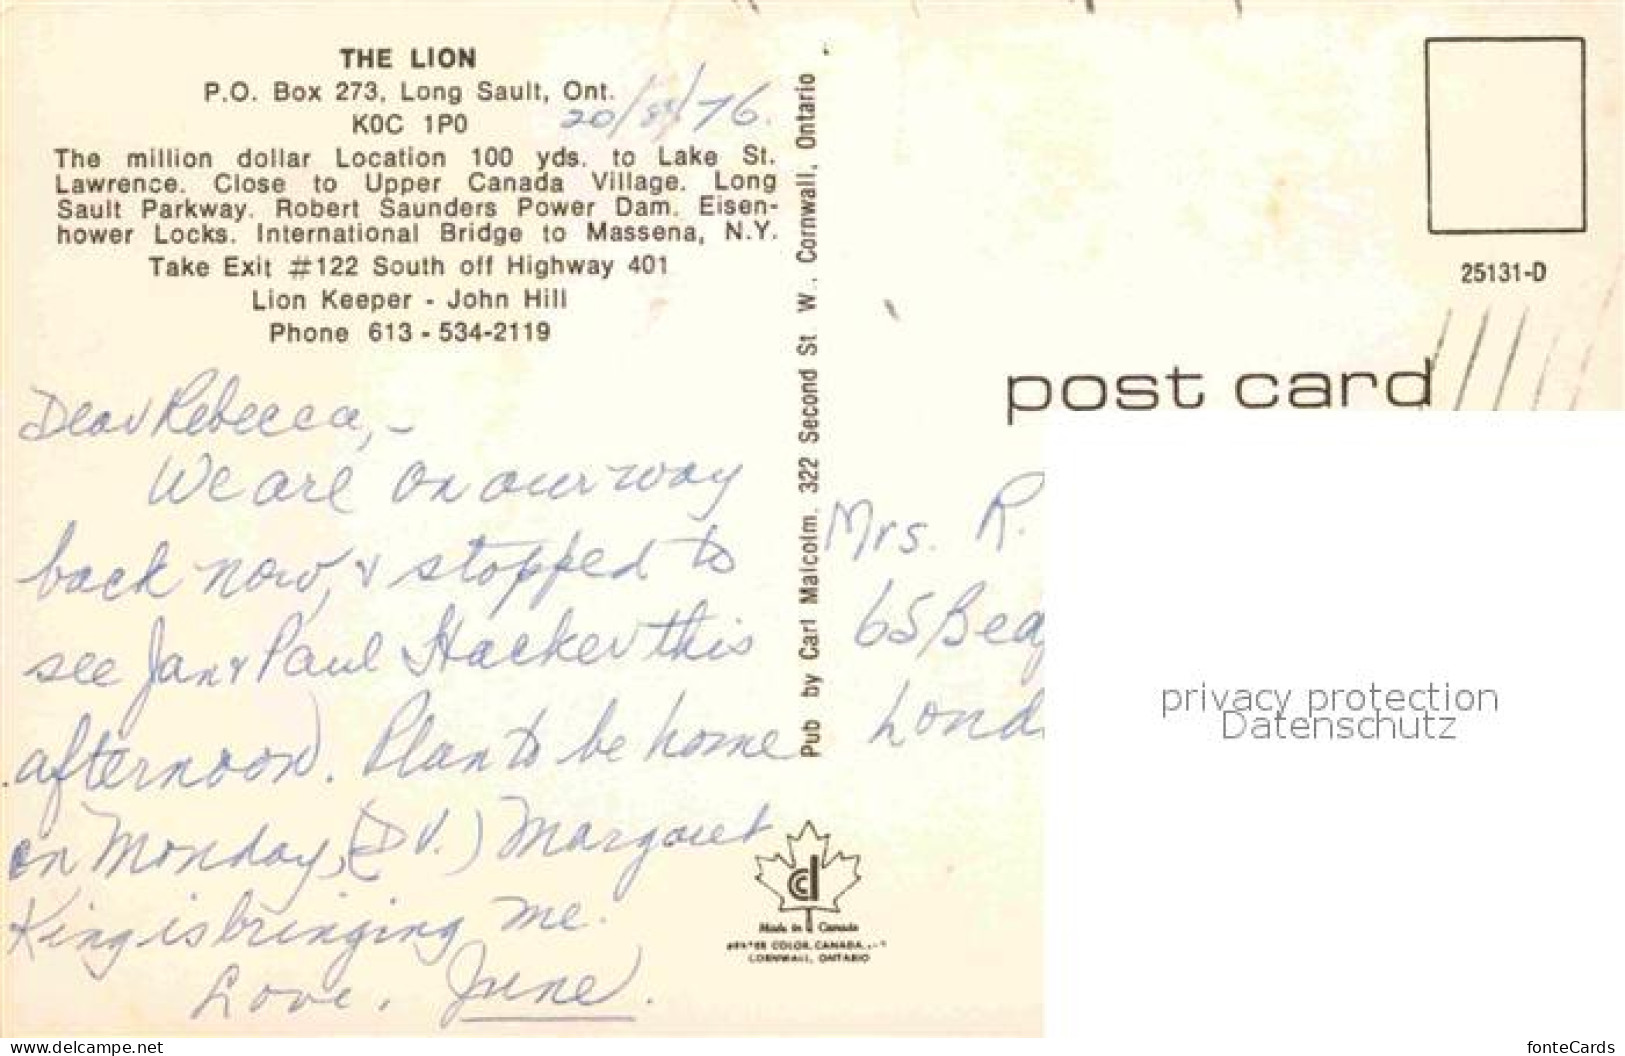 THE LION
P.O. Box 273, Long Sault, Ont.
K0C 1P0
20/ /76.
The million dollar Location 100 yds. to Lake St.
Lawrence. Close to Upper Canada Village. Long
Sault Parkway. Robert Saunders Power Dam. Eisen-
hower Locks. International Bridge to Massena, N.Y.
Take Exit #122 South off Highway 401
Lion Keeper - John Hill
Phone 613 - 534-2119
Dear Rebecca, -
We are on our way
back now, & stopped to
see Jan & Paul Hacker this
afternoon. Plan to be home
on Monday, (D.V.) Margaret
King is bringing me.
Love, June.
Pub by Carl Malcolm, 322 Second St W., Cornwall, Ontario
Made in Canada
COLOR, CANADA
CORNWALL, ONTARIO
25131-D
post card
Mrs. R.
65 Bea
Lond
privacy protection
Datenschutz
www.delcampe.net
fonteCards